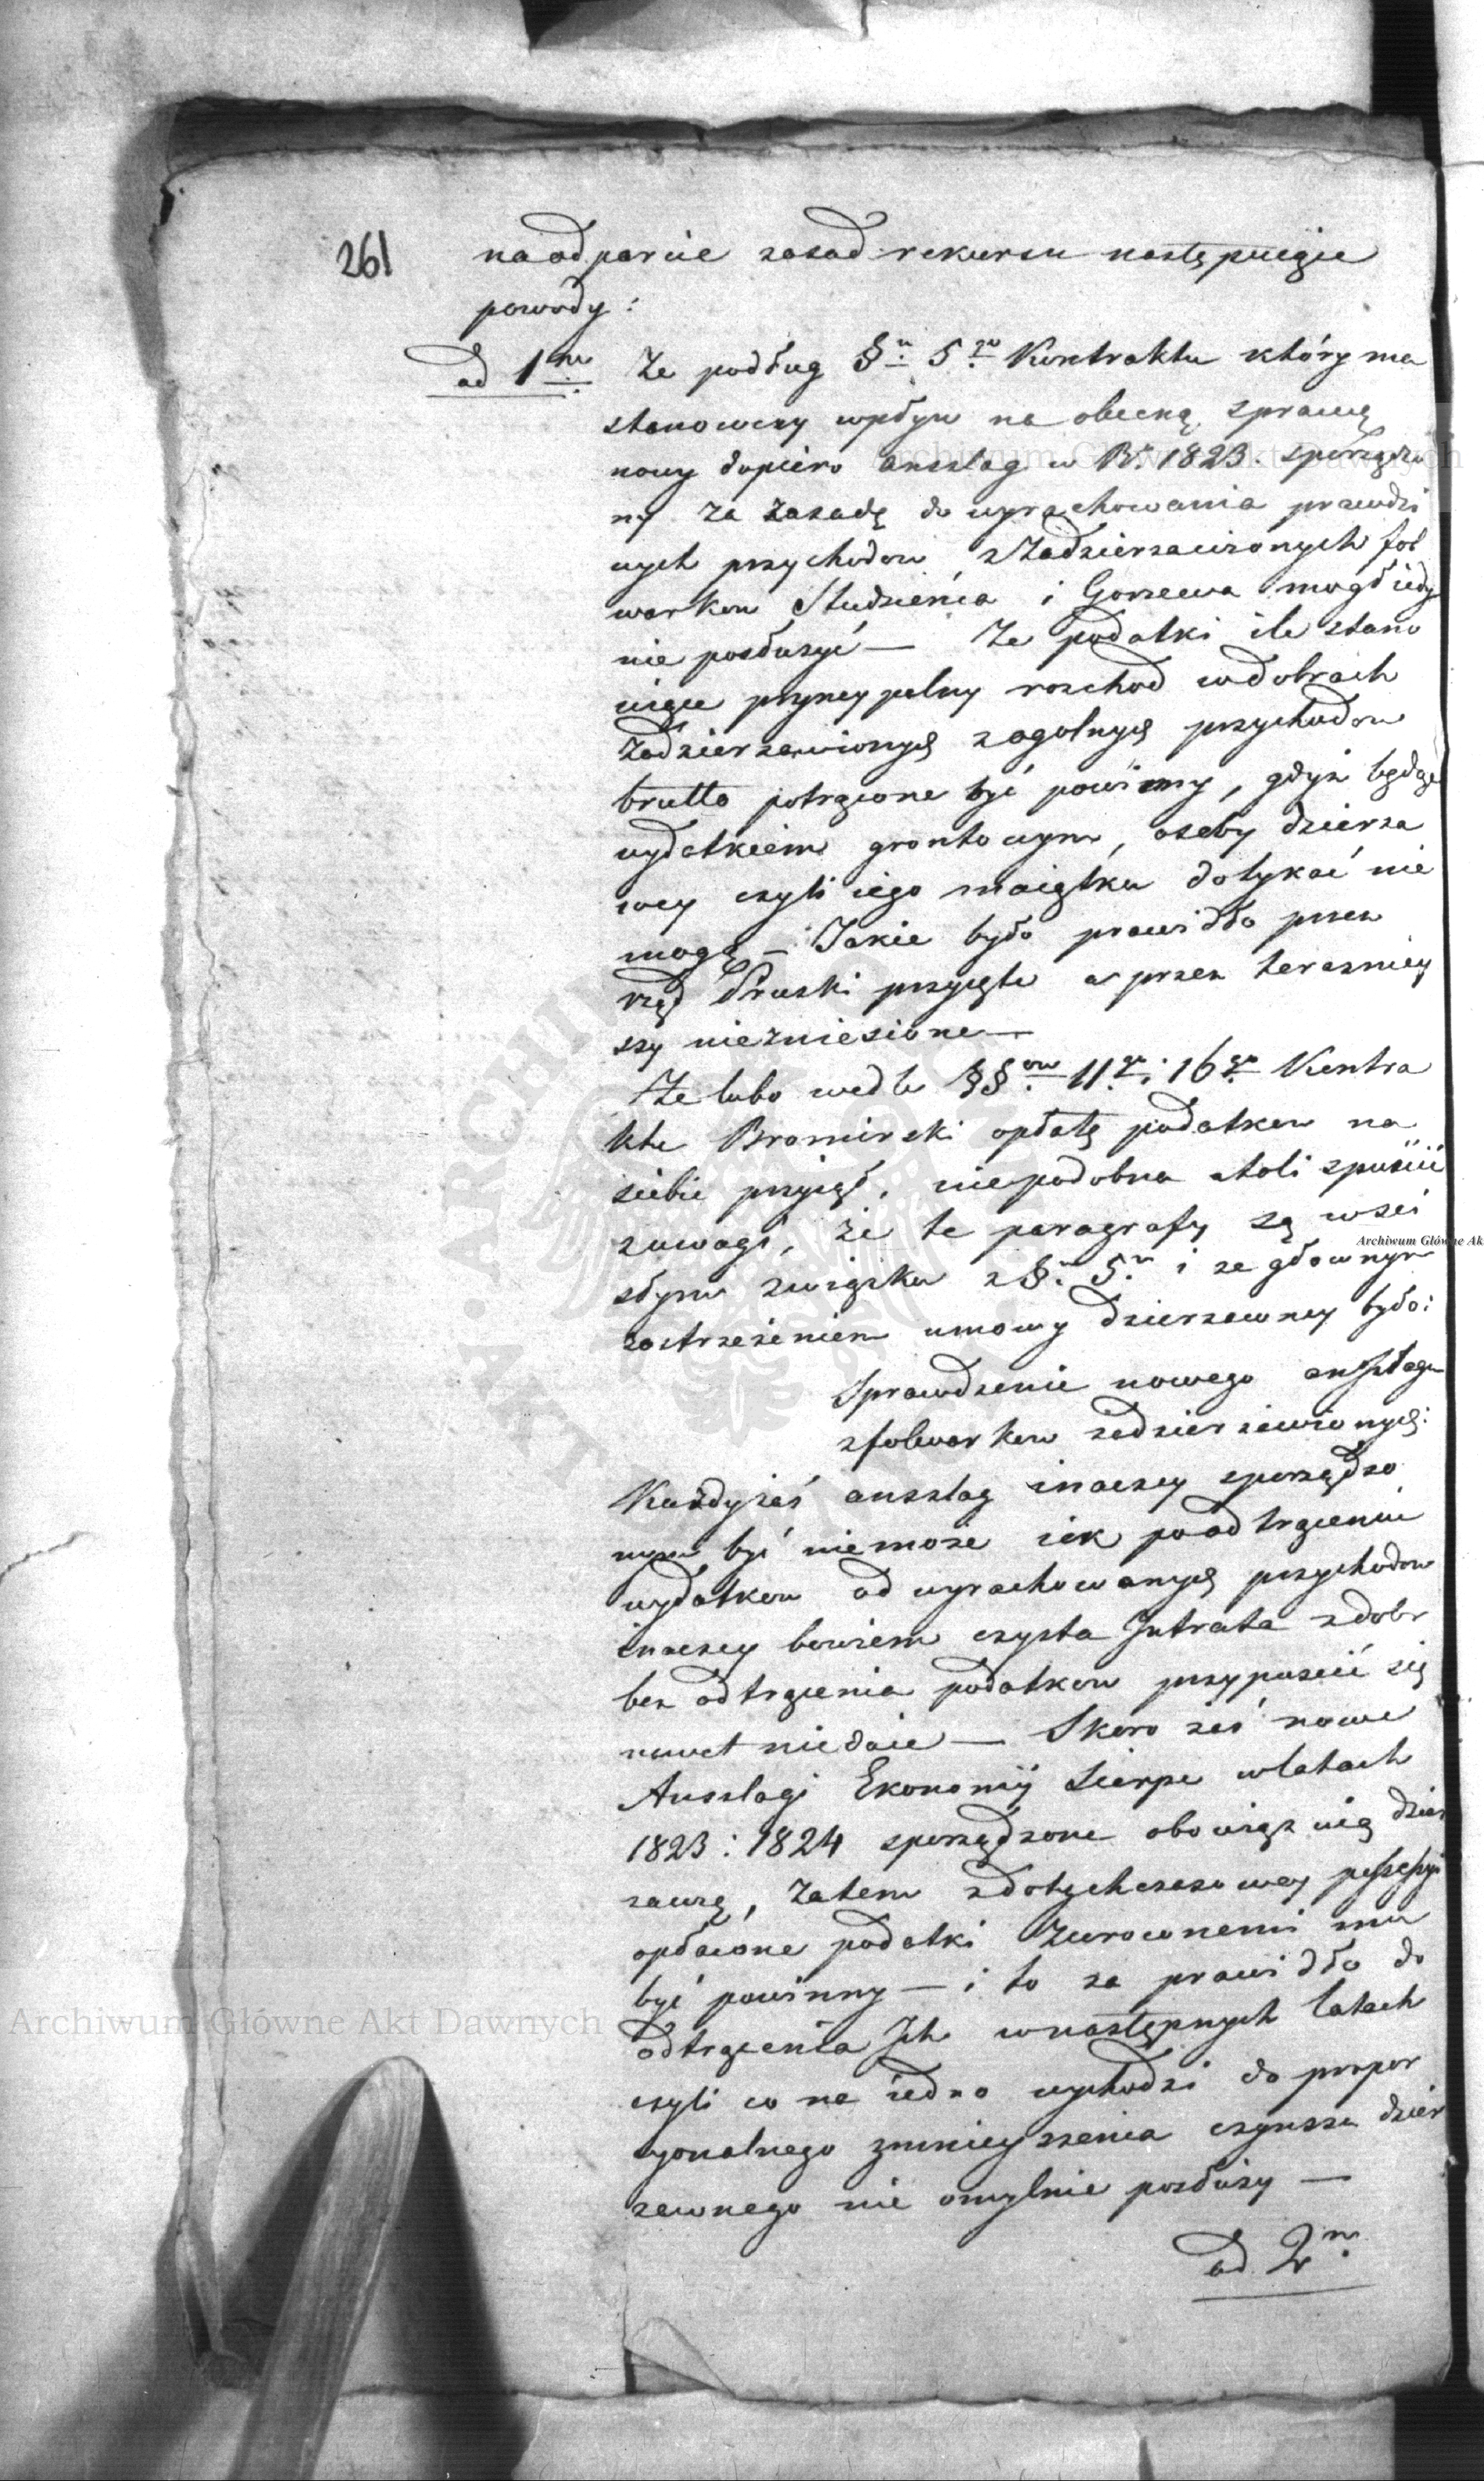 261
na odparcie zasad rekursu następuiące
powody:
ad 1m Że podług §u 5go Kontraktu który ma
stanowczy wpływ na obecną sprawę
nowy dopiero ansslag w R. 1823. sporządzo
ny za zasadę do wyrachowania prawdzi
wych przychodow z zadzierzawionych fol
warkow Studzieńca i Gorzewa mogł iedy
nie posłużyć — Że podatki ile stano
wiące pryncypalny rozchod w dobrach
zadzierzawionych z ogolnych przychodow
brutto potrącone być powinny, gdyż będąc
wydatkiem grontowym, osoby dzierza
wcy czyli iego maiątku dotykać nie
mogą — Jakie było prawidło przez
rząd Pruski przyięte a przez terazniey
szy niezniesione —
Że lubo wedle §§ow 11go i 16go Kontra
ktu Bromirski opłatę podatkow na
siebie przyiął, niepodobna atoli spuścić
z uwagi, że te paragrafy są w sci
słym związku z §m 5m i ze głownym
zastrzeżeniem umowy dzierzawney było:
Sprawdzenie nowego ansztagu
z folwarkow zadzierzawionych:
Każdy zaś ansslag inaczey sporządzo
nym być niemoże iek po odtrąceniu
wydatkow od wyrachowanych przychodow
inaczey bowiem czysta Jntrata z dobr
bez odtrącenia podatkow przypuscić się
nawet niedaie — Skoro zaś nowe
Ansslagi Ekonomij Sierpc w latach
1823: 1824 sporządzone obowiązuią dzier
zawcę, Zatem z dotychczasowey possessyi
opłacone podatki zwroconemi mu
być powinny — i to za prawidło do
odtrącenia Jch w następnych latach
czyli co na iedno wychodzi do propor
cyonalnego zmnieyszenia czynszu dzier
zawnego nie omylnie posłuży —
ad 2m
Archiwum Główne Akt Dawnych
Archiwum Główne Akt Dawnych
Archiwum Główne Ak